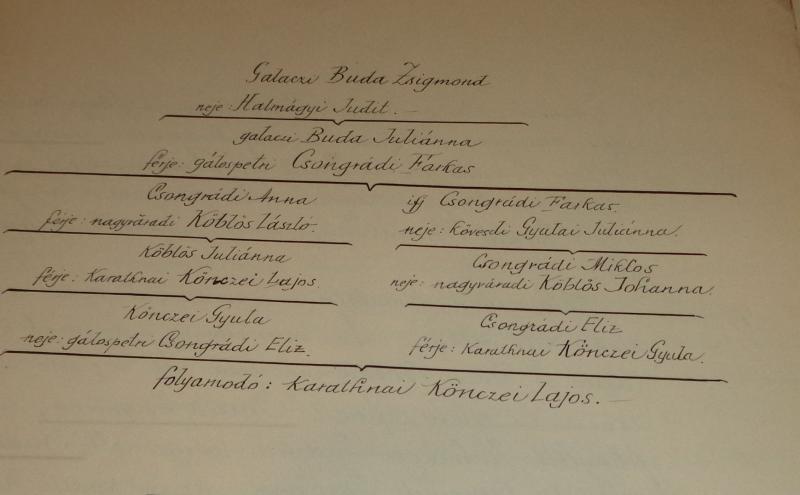 Galaczi Buda Zsigmond
neje: Halmágyi Judit. —
galaczi Buda Juliánna
férje: gálospetri Csongrádi Farkas
Csongrádi Anna
férje: nagyváradi Köblös László.
Köblös Juliánna
férje: Karathnai Könczei Lajos.
Könczei Gyula
neje: gálospetri Csongrádi Eliz.
ifj Csongrádi Farkas.
neje: kövesdi Gyulai Juliánna.
Csongrádi Miklos
neje: nagyváradi Köblös Johanna.
Csongrádi Eliz
férje: Karathnai Könczei Gyula.
folyamodó: Karathnai Könczei Lajos. —